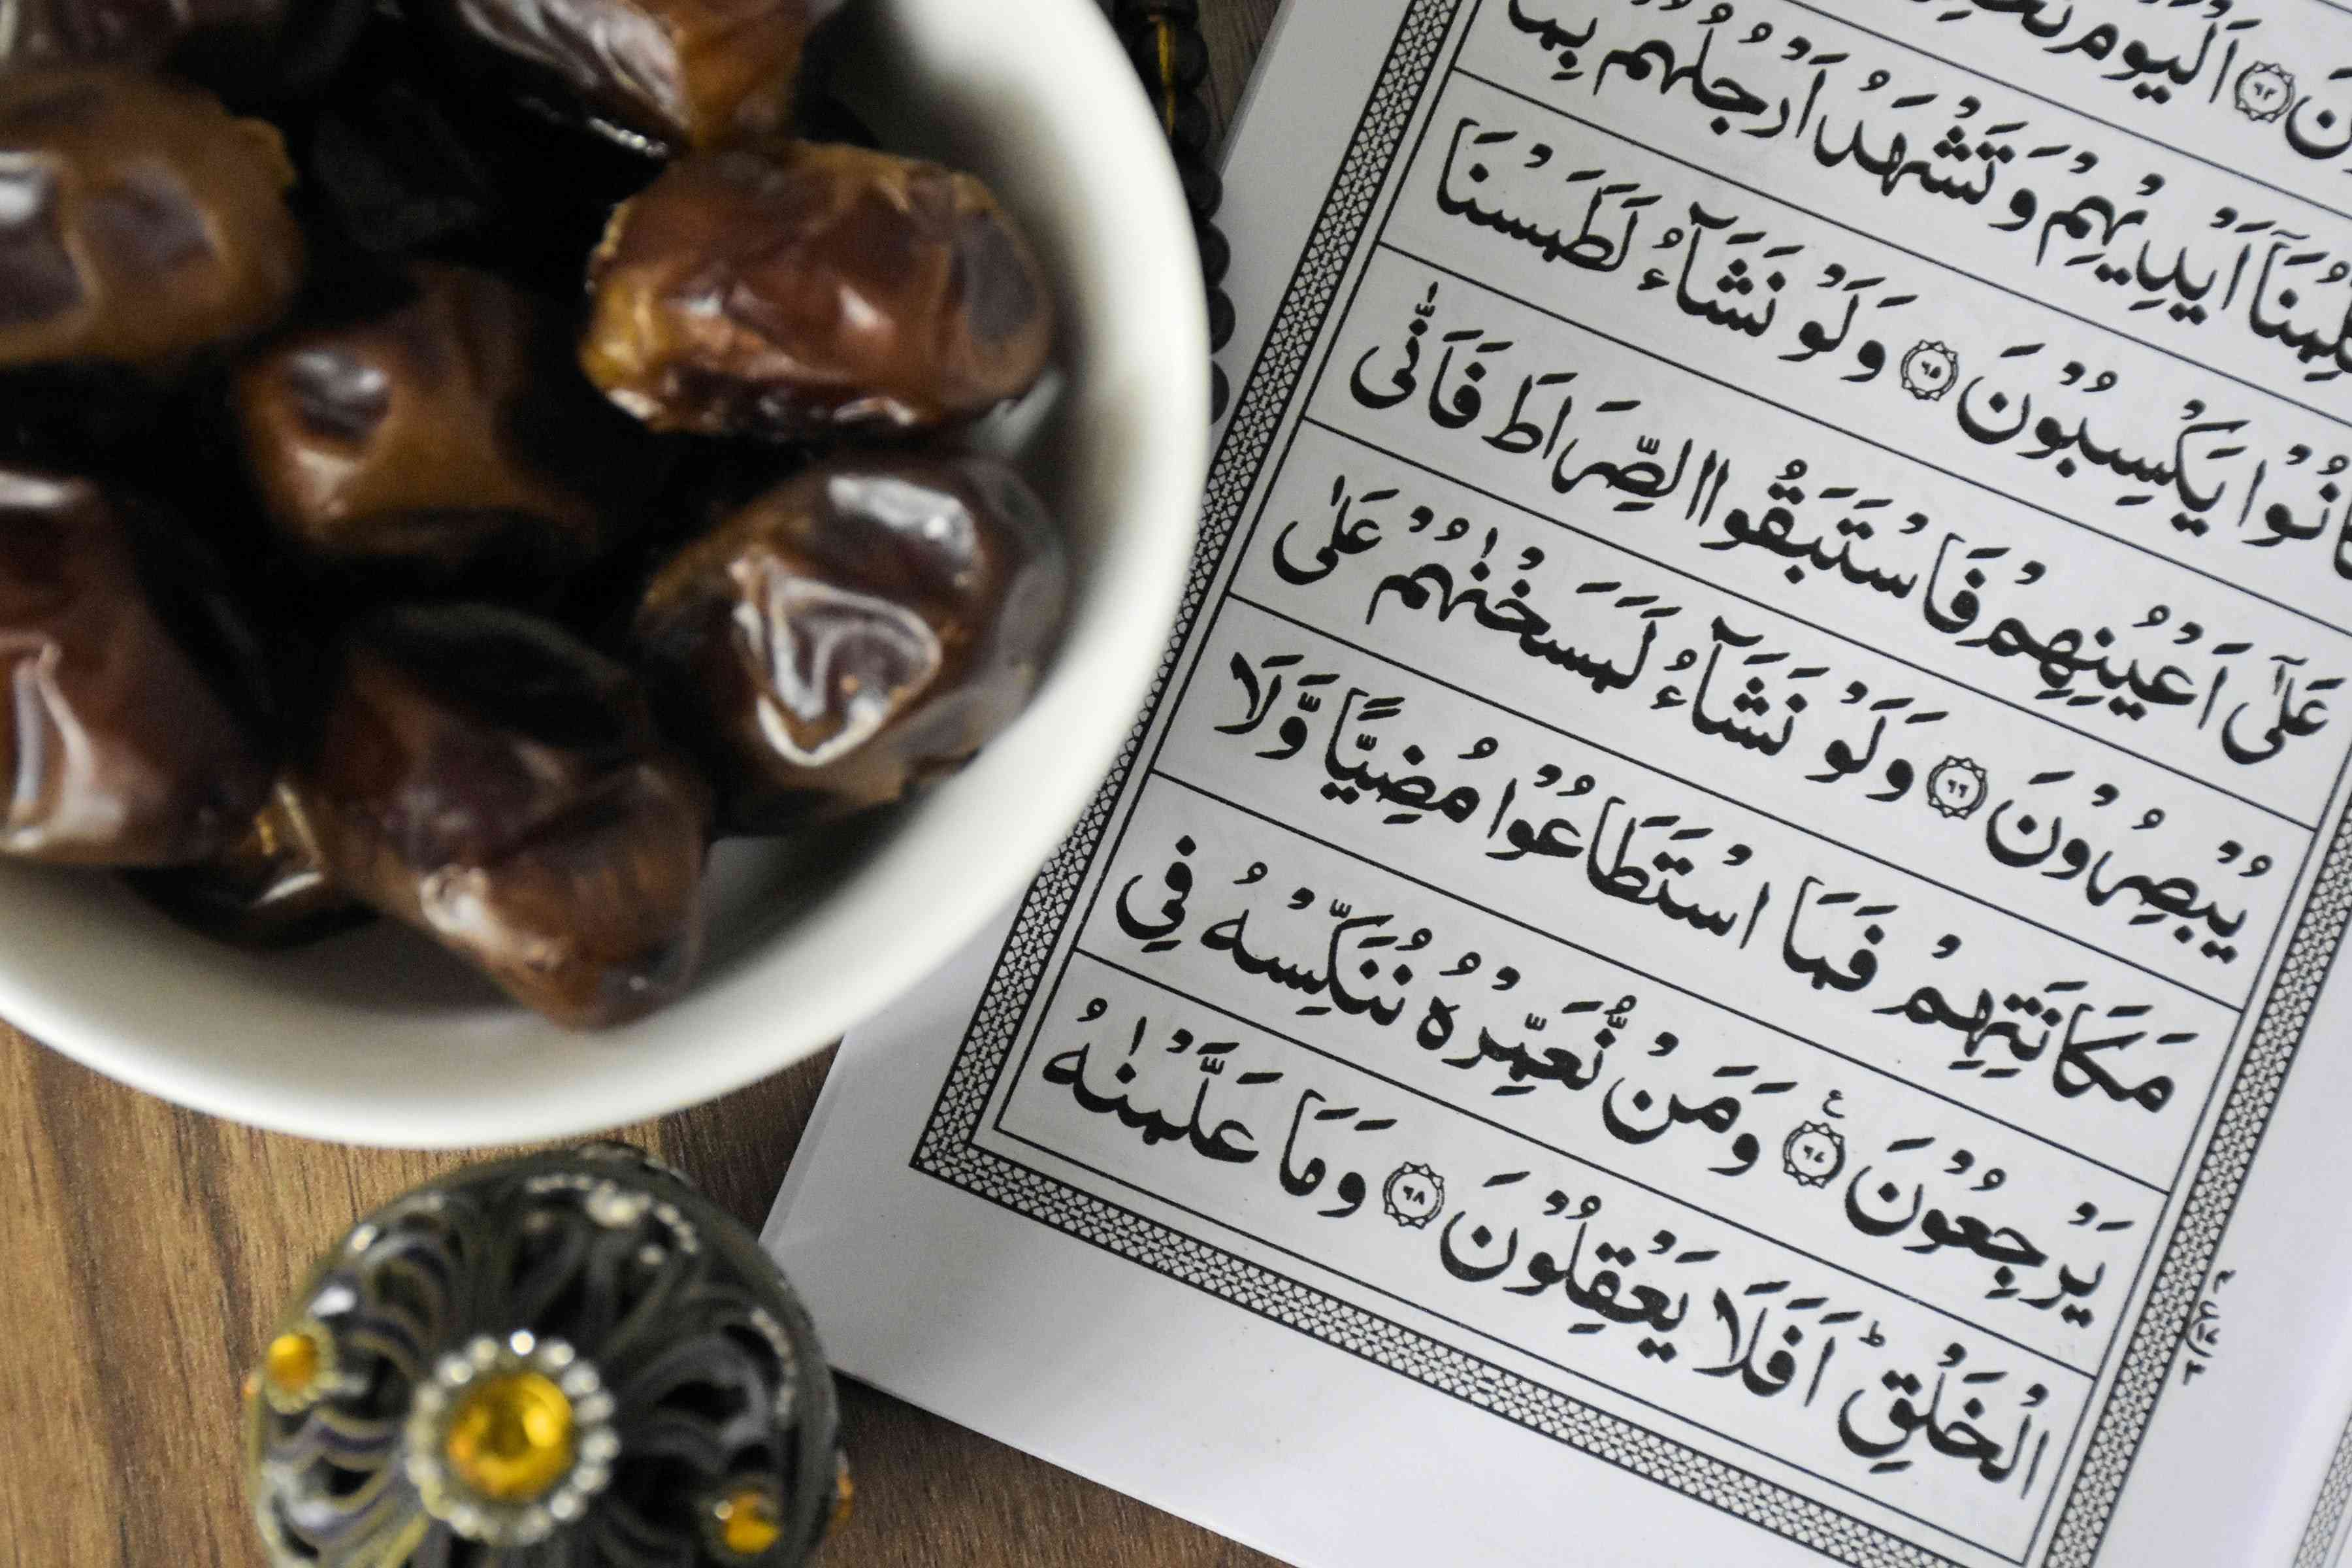 اَلْيَوْمَ
اَيْدِيْهِمْ وَتَشْهَدُ اَرْجُلُهُمْ بِمَا
كَانُوْا يَكْسِبُوْنَ ﴿٦٥﴾ وَلَوْ نَشَآءُ لَطَمَسْنَا
عَلٰۤى اَعْيُنِهِمْ فَاسْتَبَقُوا الصِّرَاطَ فَاَنّٰى
يُبْصِرُوْنَ ﴿٦٦﴾ وَلَوْ نَشَآءُ لَمَسَخْنٰهُمْ عَلٰى
مَكَانَتِهِمْ فَمَا اسْتَطَاعُوْا مُضِيًّا وَّلَا
يَرْجِعُوْنَ ﴿٦٧﴾ۧ وَمَنْ نُّعَمِّرْهُ نُنَكِّسْهُ فِى
الْخَلْقِ ؕ اَفَلَا يَعْقِلُوْنَ ﴿٦٨﴾ وَمَا عَلَّمْنٰهُ